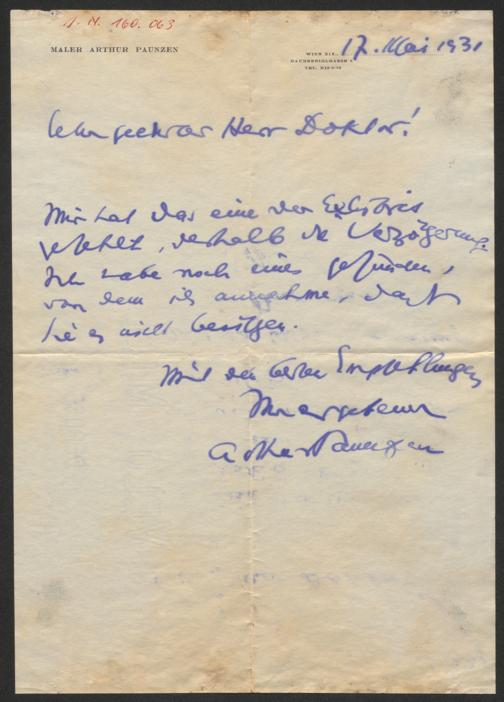 I. N. 160.063
MALER ARTHUR PAUNZEN
WIEN XIX.,
TEL.
17. Mai 1931
Sehr geehrter Herr Doktor!
Mir hat das eine der Exlibris
gefehlt, deshalb die Verzögerung.
Ich habe noch eines gefunden,
von dem ich annehme, daß
Sie es nicht besitzen.
Mit den besten Empfehlungen
Ihr ergebener
Arthur Paunzen